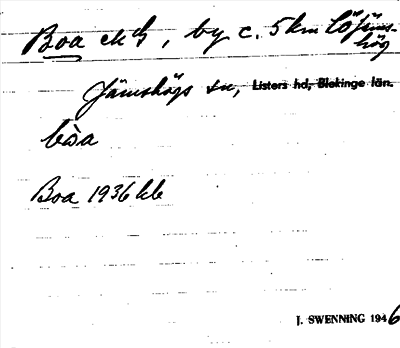 Boa ckg, by c. 5 km LÖ Jäms-
hög
Jämshögs sn, Listers hd, Blekinge län.
bòa
Boa 1936 kb
J. SWENNING 1946